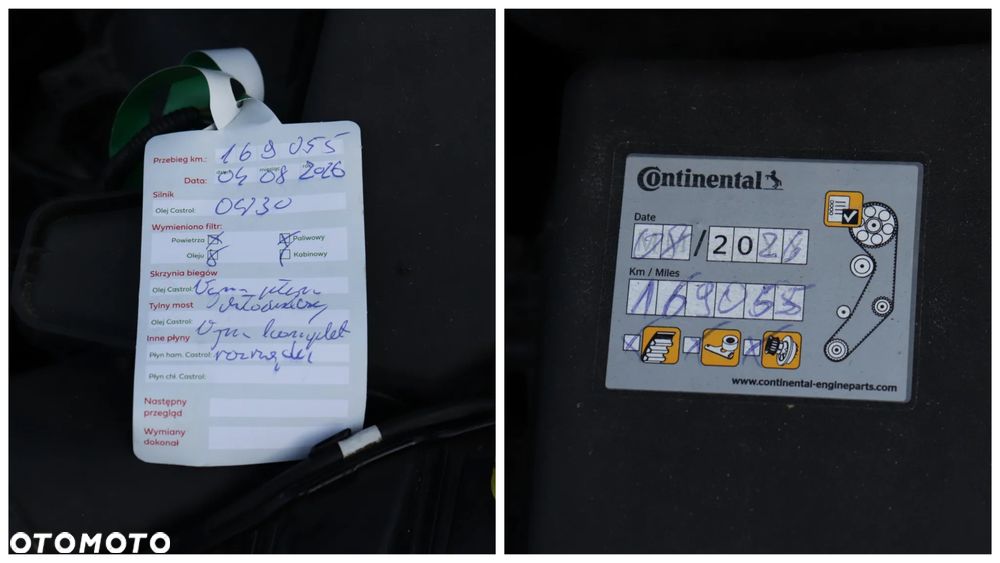 Przebieg km.: 169 055
Data: 04 08 2026
Silnik
Olej Castrol: 0W30
Wymieniono filtr:
Powietrza Paliwowy
Oleju Kabinowy
Skrzynia biegów
Olej Castrol: Wym płyn
Tylny most chłodniczy
Olej Castrol:
Inne płyny Wym komplet
Płyn ham. Castrol: rozrządu
Płyn chł. Castrol:
Następny
przegląd
Wymiany
dokonał
OTOMOTO
Continental
Date
08/2026
Km / Miles
169055
www.continental-engineparts.com